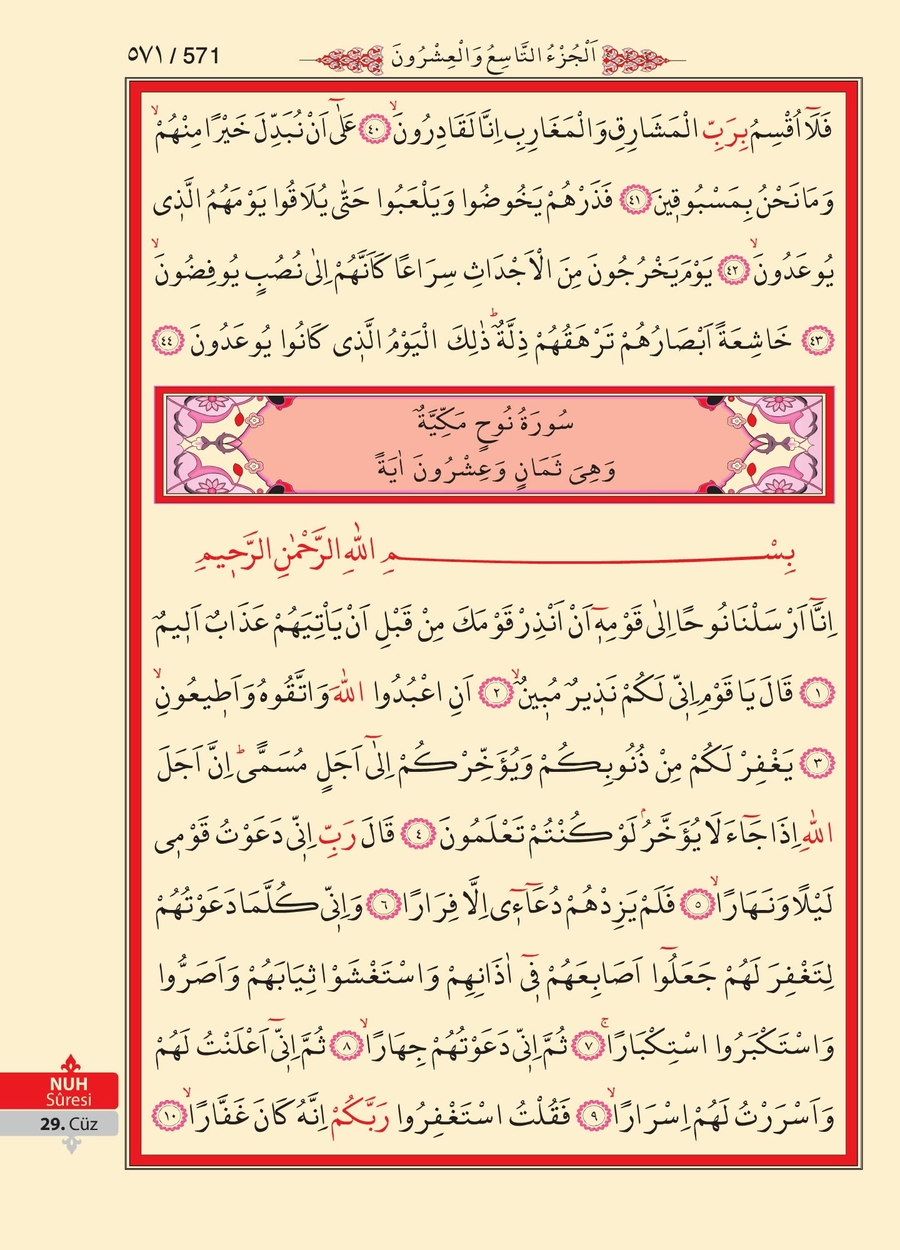 ٥٧١ / 571
اَلْجُزْءُ التَّاسِعُ وَالْعِشْرُونَ
فَلَٓا اُقْسِمُ بِرَبِّ الْمَشَارِقِ وَالْمَغَارِبِ اِنَّا لَقَادِرُونَۙ ﴿٤٠﴾ عَلٰٓى اَنْ نُبَدِّلَ خَيْرًا مِنْهُمْۙ
وَمَا نَحْنُ بِمَسْبُوقٖينَ ﴿٤١﴾ فَذَرْهُمْ يَخُوضُوا وَيَلْعَبُوا حَتّٰى يُلَاقُوا يَوْمَهُمُ الَّذٖى
يُوعَدُونَۙ ﴿٤٢﴾ يَوْمَ يَخْرُجُونَ مِنَ الْاَجْدَاثِ سِرَاعًا كَاَنَّهُمْ اِلٰى نُصُبٍ يُوفِضُونَۙ
﴿٤٣﴾ خَاشِعَةً اَبْصَارُهُمْ تَرْهَقُهُمْ ذِلَّةٌؕ ذٰلِكَ الْيَوْمُ الَّذٖى كَانُوا يُوعَدُونَ ﴿٤٤﴾
سُورَةُ نُوحٍ مَكِّيَّةٌ
وَهِىَ ثَمَانٍ وَعِشْرُونَ اٰيَةً
بِسْمِ اللّٰهِ الرَّحْمٰنِ الرَّحٖيمِ
اِنَّٓا اَرْسَلْنَا نُوحًا اِلٰى قَوْمِهٖٓ اَنْ اَنْذِرْ قَوْمَكَ مِنْ قَبْلِ اَنْ يَاْتِيَهُمْ عَذَابٌ اَلٖيمٌ
﴿١﴾ قَالَ يَا قَوْمِ اِنّٖى لَكُمْ نَذٖيرٌ مُبٖينٌۙ ﴿٢﴾ اَنِ اعْبُدُوا اللّٰهَ وَاتَّقُوهُ وَاَطٖيعُونِۙ
﴿٣﴾ يَغْفِرْ لَكُمْ مِنْ ذُنُوبِكُمْ وَيُؤَخِّرْكُمْ اِلٰٓى اَجَلٍ مُسَمًّىؕ اِنَّ اَجَلَ
اللّٰهِ اِذَا جَٓاءَ لَا يُؤَخَّرُۢ لَوْ كُنْتُمْ تَعْلَمُونَ ﴿٤﴾ قَالَ رَبِّ اِنّٖى دَعَوْتُ قَوْمٖى
لَيْلًا وَنَهَارًاۙ ﴿٥﴾ فَلَمْ يَزِدْهُمْ دُعَٓاءٖٓى اِلَّا فِرَارًا ﴿٦﴾ وَاِنّٖى كُلَّمَا دَعَوْتُهُمْ
لِتَغْفِرَ لَهُمْ جَعَلُٓوا اَصَابِعَهُمْ فٖٓى اٰذَانِهِمْ وَاسْتَغْشَوْا ثِيَابَهُمْ وَاَصَرُّوا
وَاسْتَكْبَرُوا اسْتِكْبَارًاۚ ﴿٧﴾ ثُمَّ اِنّٖى دَعَوْتُهُمْ جِهَارًاۙ ﴿٨﴾ ثُمَّ اِنّٖٓى اَعْلَنْتُ لَهُمْ
وَاَسْرَرْتُ لَهُمْ اِسْرَارًاۙ ﴿٩﴾ فَقُلْتُ اسْتَغْفِرُوا رَبَّكُمْ اِنَّهُ كَانَ غَفَّارًاۙ ﴿١٠﴾
NUH
Sûresi
29. Cüz